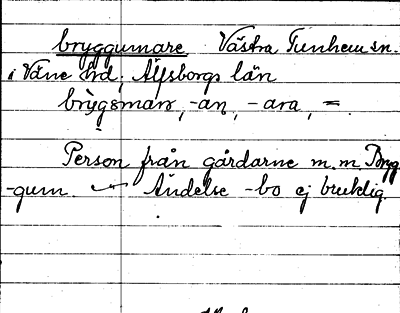 bryggumare Västra Tunhem sn.
i Väne hd; Älfsborgs län
-an, -ara, =.
Person från gårdarne m.m. Bryg-
gum. Ändelse -bo ej bruklig.